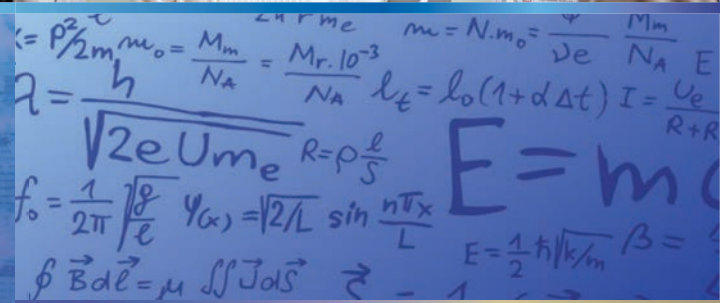 k = p²/2m m₀ = Mm/NA = Mr.10⁻³/NA
m = N.m₀ = /νe Mm/NA E
λ = h/√2eUmₑ
ℓt = ℓ₀(1+αΔt) I = Ue/R+R
R = ρ ℓ/S
E = m
f₀ = 1/2π √g/ℓ ψ(x) = √2/L sin nπx/L
E = 1/2 ħ√k/m β =
∮ B⃗dℓ⃗ = μ ∬ J⃗dS⃗